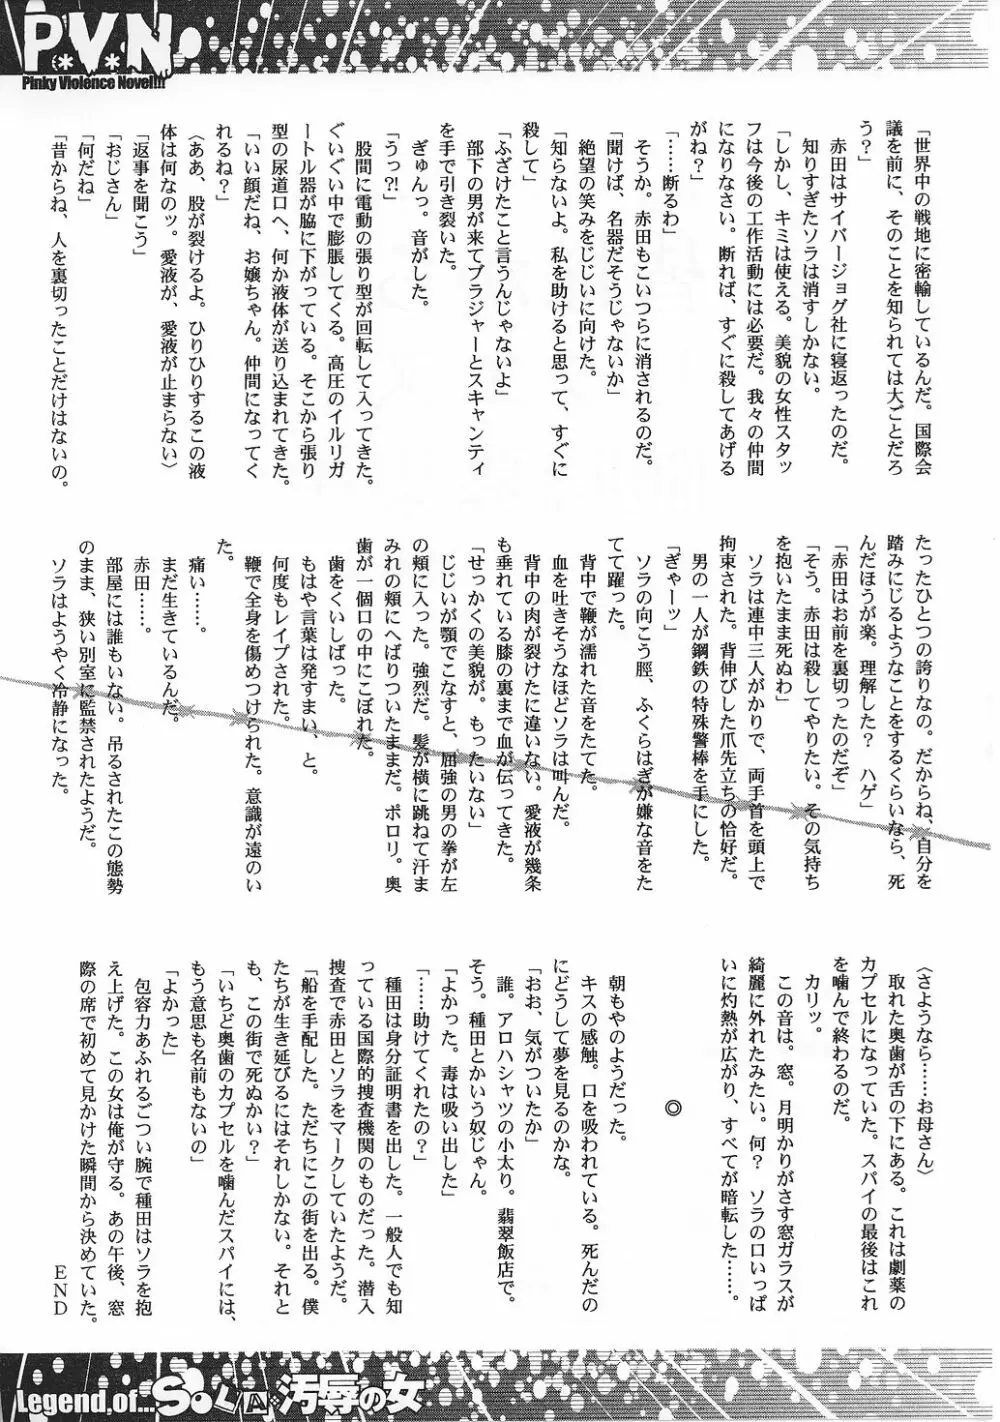 P.V.N
Pinky Violence Novel!!!
「世界中の戦地に密輸しているんだ。国際会
議を前に、そのことを知られては大ごとだろ
う?」
赤田はサイバージョグ社に寝返ったのだ。
知りすぎたソラは消すしかない。
「しかし、キミは使える。美貌の女性スタッ
フは今後の工作活動には必要だ。我々の仲間
になりなさい。断れば、すぐに殺してあげる
がね?」
「……断るわ」
そうか。赤田もこいつらに消されるのだ。
「聞けば、名器だそうじゃないか」
絶望の笑みをじじいに向けた。
「知らないよ。私を助けると思って、すぐに
殺して」
「ふざけたこと言うんじゃないよ」
部下の男が来てブラジャーとスキャンティ
を手で引き裂いた。
ぎゅんっ。音がした。
「うっ?!」
股間に電動の張り型が回転して入ってきた。
ぐいぐい中で膨脹してくる。高圧のイルリガ
ートル器が脇に下がっている。そこから張り
型の尿道口へ、何か液体が送り込まれてきた。
「いい顔だね、お嬢ちゃん。仲間になってく
れるね?」
〈ああ、股が裂けるよ。ひりひりするこの液
体は何なのッ。愛液が、愛液が止まらない〉
「返事を聞こう」
「おじさん」
「何だね」
「昔からね、人を裏切ったことだけはないの。
たったひとつの誇りなの。だからね、自分を
踏みにじるようなことをするくらいなら、死
んだほうが楽。理解した? ハゲ」
「赤田はお前を裏切ったのだぞ」
「そう。赤田は殺してやりたい。その気持ち
を抱いたまま死ぬわ」
ソラは連中三人がかりで、両手首を頭上で
拘束された。背伸びした爪先立ちの恰好だ。
男の一人が鋼鉄の特殊警棒を手にした。
「ぎゃーッ」
ソラの向こう脛、ふくらはぎが嫌な音をた
てて躍った。
背中で鞭が濡れた音をたてた。
血を吐きそうなほどソラは叫んだ。
背中の肉が裂けたに違いない。愛液が幾条
も垂れている膝の裏まで血が伝ってきた。
「せっかくの美貌が。もったいない」
じじいが顎でこなすと、屈強の男の拳が左
の頬に入った。強烈だ。髪が横に跳ねて汗ま
みれの頬にへばりついたままだ。ポロリ。奥
歯が一個口の中にこぼれた。
歯をくいしばった。
もはや言葉は発すまい、と。
何度もレイプされた。
鞭で全身を傷めつけられた。意識が遠のい
た。
痛い……。
まだ生きているんだ。
赤田……。
部屋には誰もいない。吊るされたこの態勢
のまま、狭い別室に監禁されたようだ。
ソラはようやく冷静になった。
〈さようなら……お母さん〉
取れた奥歯が舌の下にある。これは劇薬の
カプセルになっていた。スパイの最後はこれ
を噛んで終わるのだ。
カリッ。
この音は。窓。月明かりがさす窓ガラスが
綺麗に外れたみたい。何? ソラの口いっぱ
いに灼熱が広がり、すべてが暗転した……。
◎
朝もやのようだった。
キスの感触。口を吸われている。死んだの
にどうして夢を見るのかな。
「おお、気がついたか」
誰。アロハシャツの小太り。翡翠飯店で。
そう。種田とかいう奴じゃん。
「よかった。毒は吸い出した」
「……助けてくれたの?」
種田は身分証明書を出した。一般人でも知
っている国際的捜査機関のものだった。潜入
捜査で赤田とソラをマークしていたようだ。
「船を手配した。ただちにこの街を出る。僕
たちが生き延びるにはそれしかない。それと
も、この街で死ぬかい?」
「いちど奥歯のカプセルを噛んだスパイには、
もう意思も名前もないの」
「よかった」
包容力あふれるごつい腕で種田はソラを抱
え上げた。この女は俺が守る。あの午後、窓
際の席で初めて見かけた瞬間から決めていた。
END
Legend of... SOLA 汚辱の女